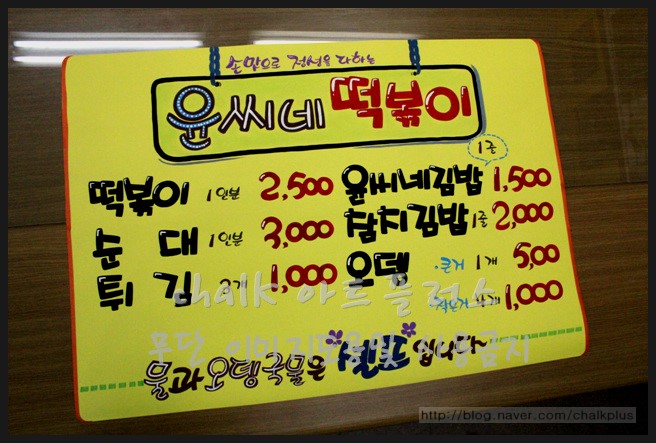 손맛으로 정성을 다하는
윤씨네 떡볶이
1줄
떡볶이 1인분 2,500 윤씨네김밥 1,500
순대 1인분 3,000 참치김밥 1줄 2,000
튀김 1,000 오뎅 ·큰거 1개 5,00
·작은거 1,000
chalk 아트 플러스
무단 이미지도용및 사용금지
물과 오뎅국물은 셀프 입니다~
http://blog.naver.com/chalkplus